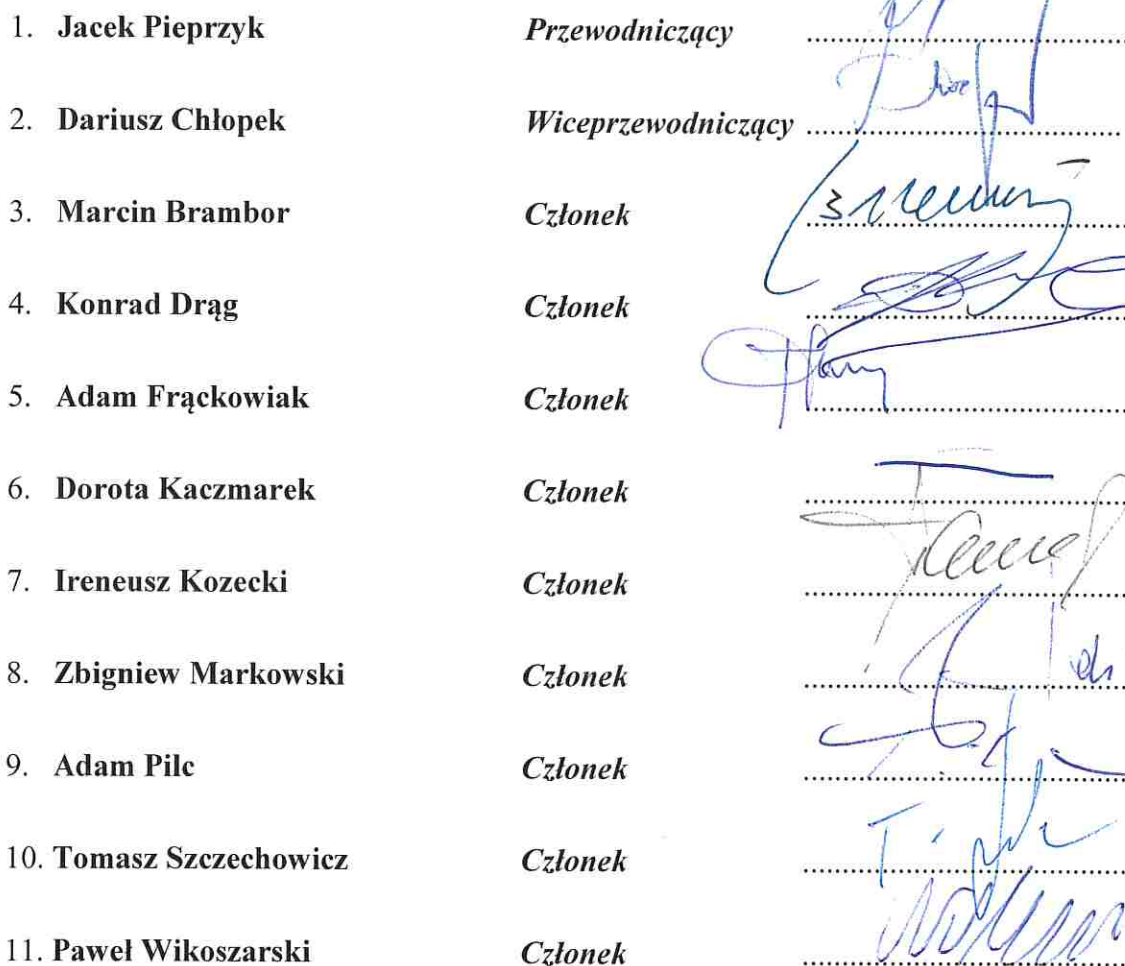 1. Jacek Pieprzyk Przewodniczący
2. Dariusz Chłopek Wiceprzewodniczący
3. Marcin Brambor Członek
4. Konrad Drąg Członek
5. Adam Frąckowiak Członek
6. Dorota Kaczmarek Członek
7. Ireneusz Kozecki Członek
8. Zbigniew Markowski Członek
9. Adam Pilc Członek
10. Tomasz Szczechowicz Członek
11. Paweł Wikoszarski Członek